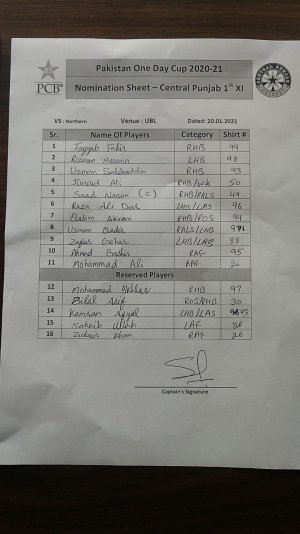 PCB
Pakistan One Day Cup 2020-21
Nomination Sheet – Central Punjab 1st XI
VS : Northern Venue : UBL Dated: 20.01.2021
Sr. Name Of Players Category Shirt #
1 Tayyab Tahir RHB 99
2 Rizwan Hussain LHB 98
3 Usman Salahuddin RHB 93
4 Junaid Ali RHB/wk 50
5 Saad Nasim (C) RHB/RALS 49
6 Raza Ali Dar LHB/LAS 96
7 Qasim Akram RHB/ROS 94
8 Usman Qadir RALS/LHB
9 Zafar Gohar LHB/LAS 88
10 Ahmad Bashir RAF 95
11 Mohammad Ali RAF
Reserved Players
12 Mohammad Akhlaq RHB 97
13 Bilal Asif ROS/RHB 30
14 Kamran Afzal LHB/LAS
15 Sohaib Ullah LAF 28
16 Zubair Khan RAF 26
Captain's Signature